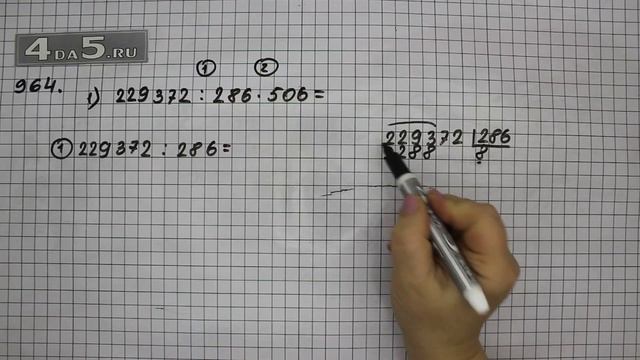 4DA5.RU
964.
① ②
1) 229372 : 286 · 506 =
① 229372 : 286 =
229372 286
2288 8